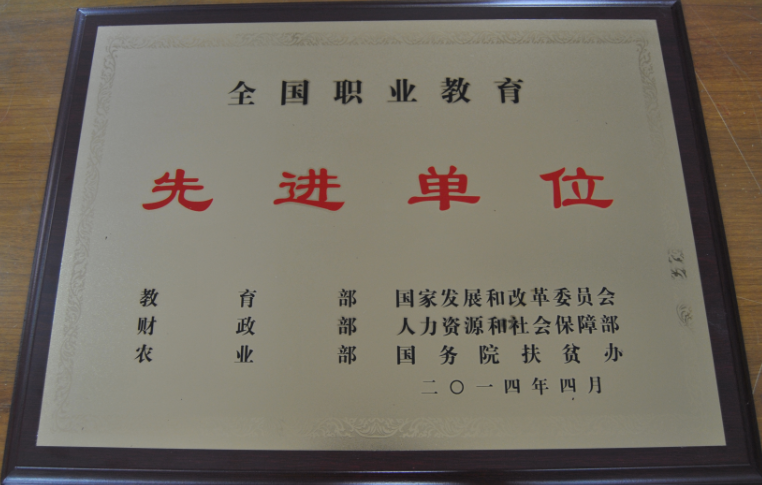 全国职业教育
先进单位
教育部 国家发展和改革委员会
财政部 人力资源和社会保障部
农业部 国务院扶贫办
二〇一四年四月